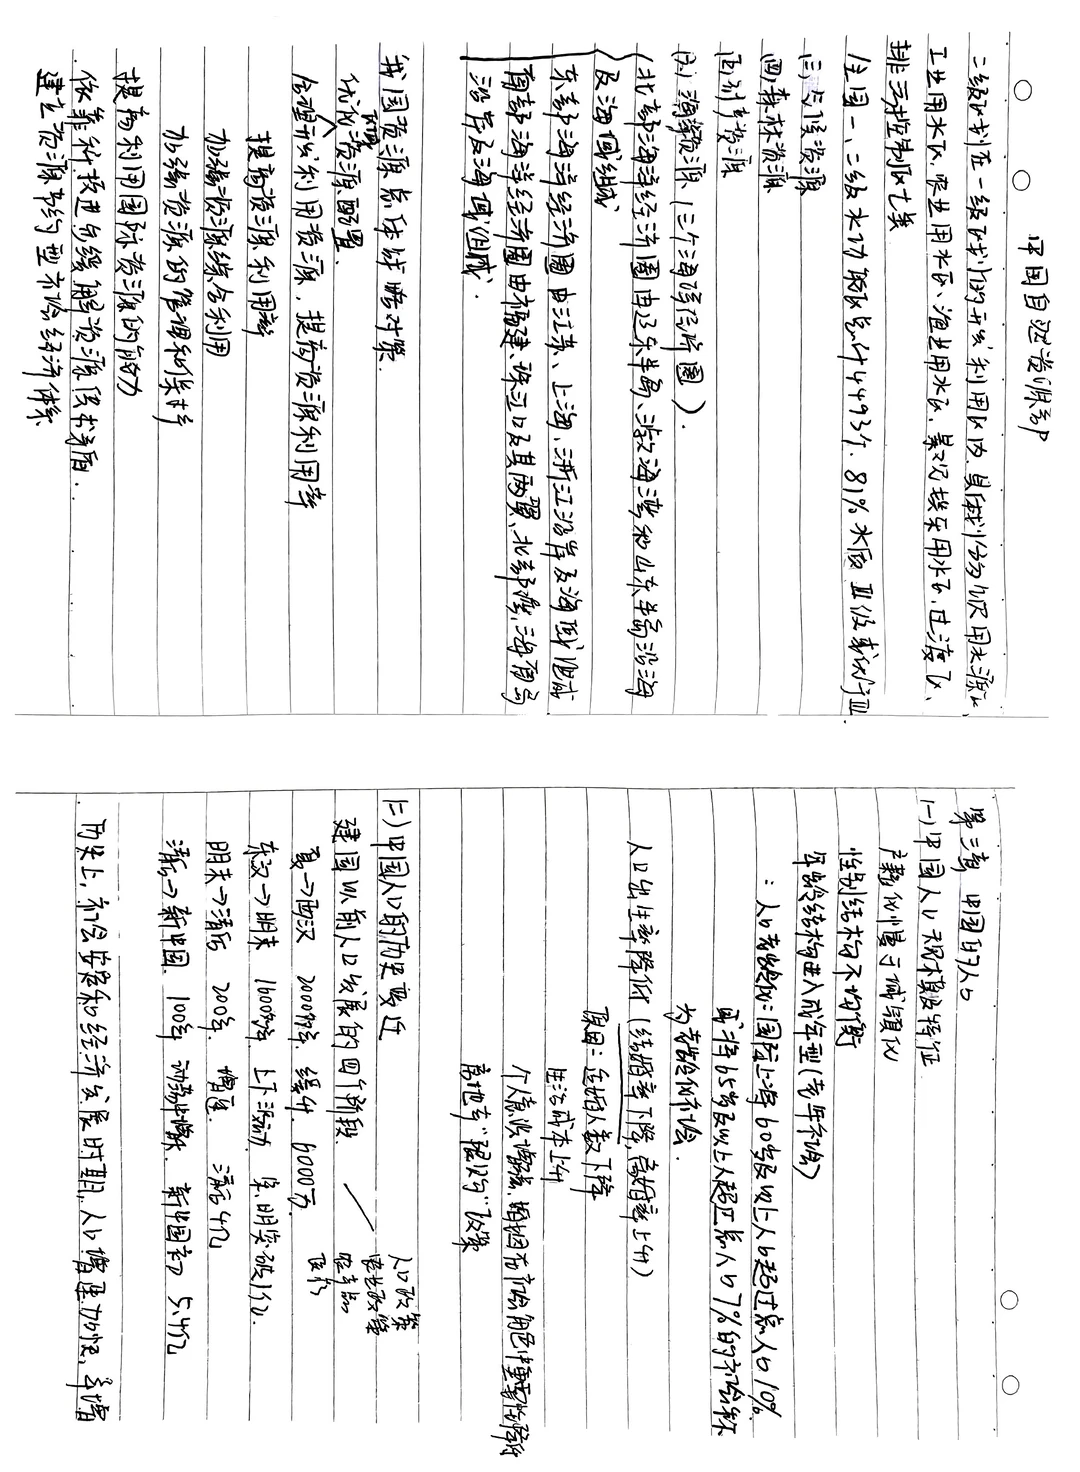 中国自然资源
二级区划在一级区划的开发利用区内,具体划分为饮用水源区、
工业用水区、农业用水区、渔业用水区、景观娱乐用水区、过渡区、
排污控制区七类
全国一、二级水功能区总计4493个.81%水质Ⅲ级或优于Ⅲ
(三)气候资源
(四)森林资源
(五)
(六)海洋资源(三个海洋经济圈).
北部海洋经济圈由辽东半岛、渤海湾和山东半岛沿海
及海域组成
东部海洋经济圈由江苏、上海、浙江沿岸及海域组成
南部海洋经济圈由福建、珠江口及其两翼、北部湾、海南岛
沿岸及海域组成.
我国资源总体战略对策.
优化资源配置.
合理开发利用资源,提高资源利用率
提高资源利用率
加强资源综合利用
加强资源的管理和保护
提高利用国际资源的能力
依靠科技进步缓解资源供求矛盾.
建立资源节约型市场经济体系
第三章 中国的人口
(一)中国人口规模及特征
严格化慢于城镇化
性别结构不均衡
年龄结构进入成年型(老年社会)
:人口老龄化:国际上将60岁及以上人口超过总人口10%
或将65岁及以上人超过总人口7%的社会称
为老龄化社会.
人口出生率降低(结婚率下降,离婚率上升)
原因:适婚人数下降
生活成本上升
个人意识增强.婚姻在社会角色中重要性降低
高地专"限购"政策
(二)中国人口的历史变迁
建国以前人口发展的四个阶段.
人口政策
夏→两汉 2000多年. 缓升 6000万.
东汉→明末 1600多年. 上下波动 宋.明突破1亿.
明末→清后 200年. 增速. 清后4亿
清后→新中国. 100年 动荡中增长. 新中国初 5.4亿
历史上,社会安定和经济发展时期,人口增速加快,年增